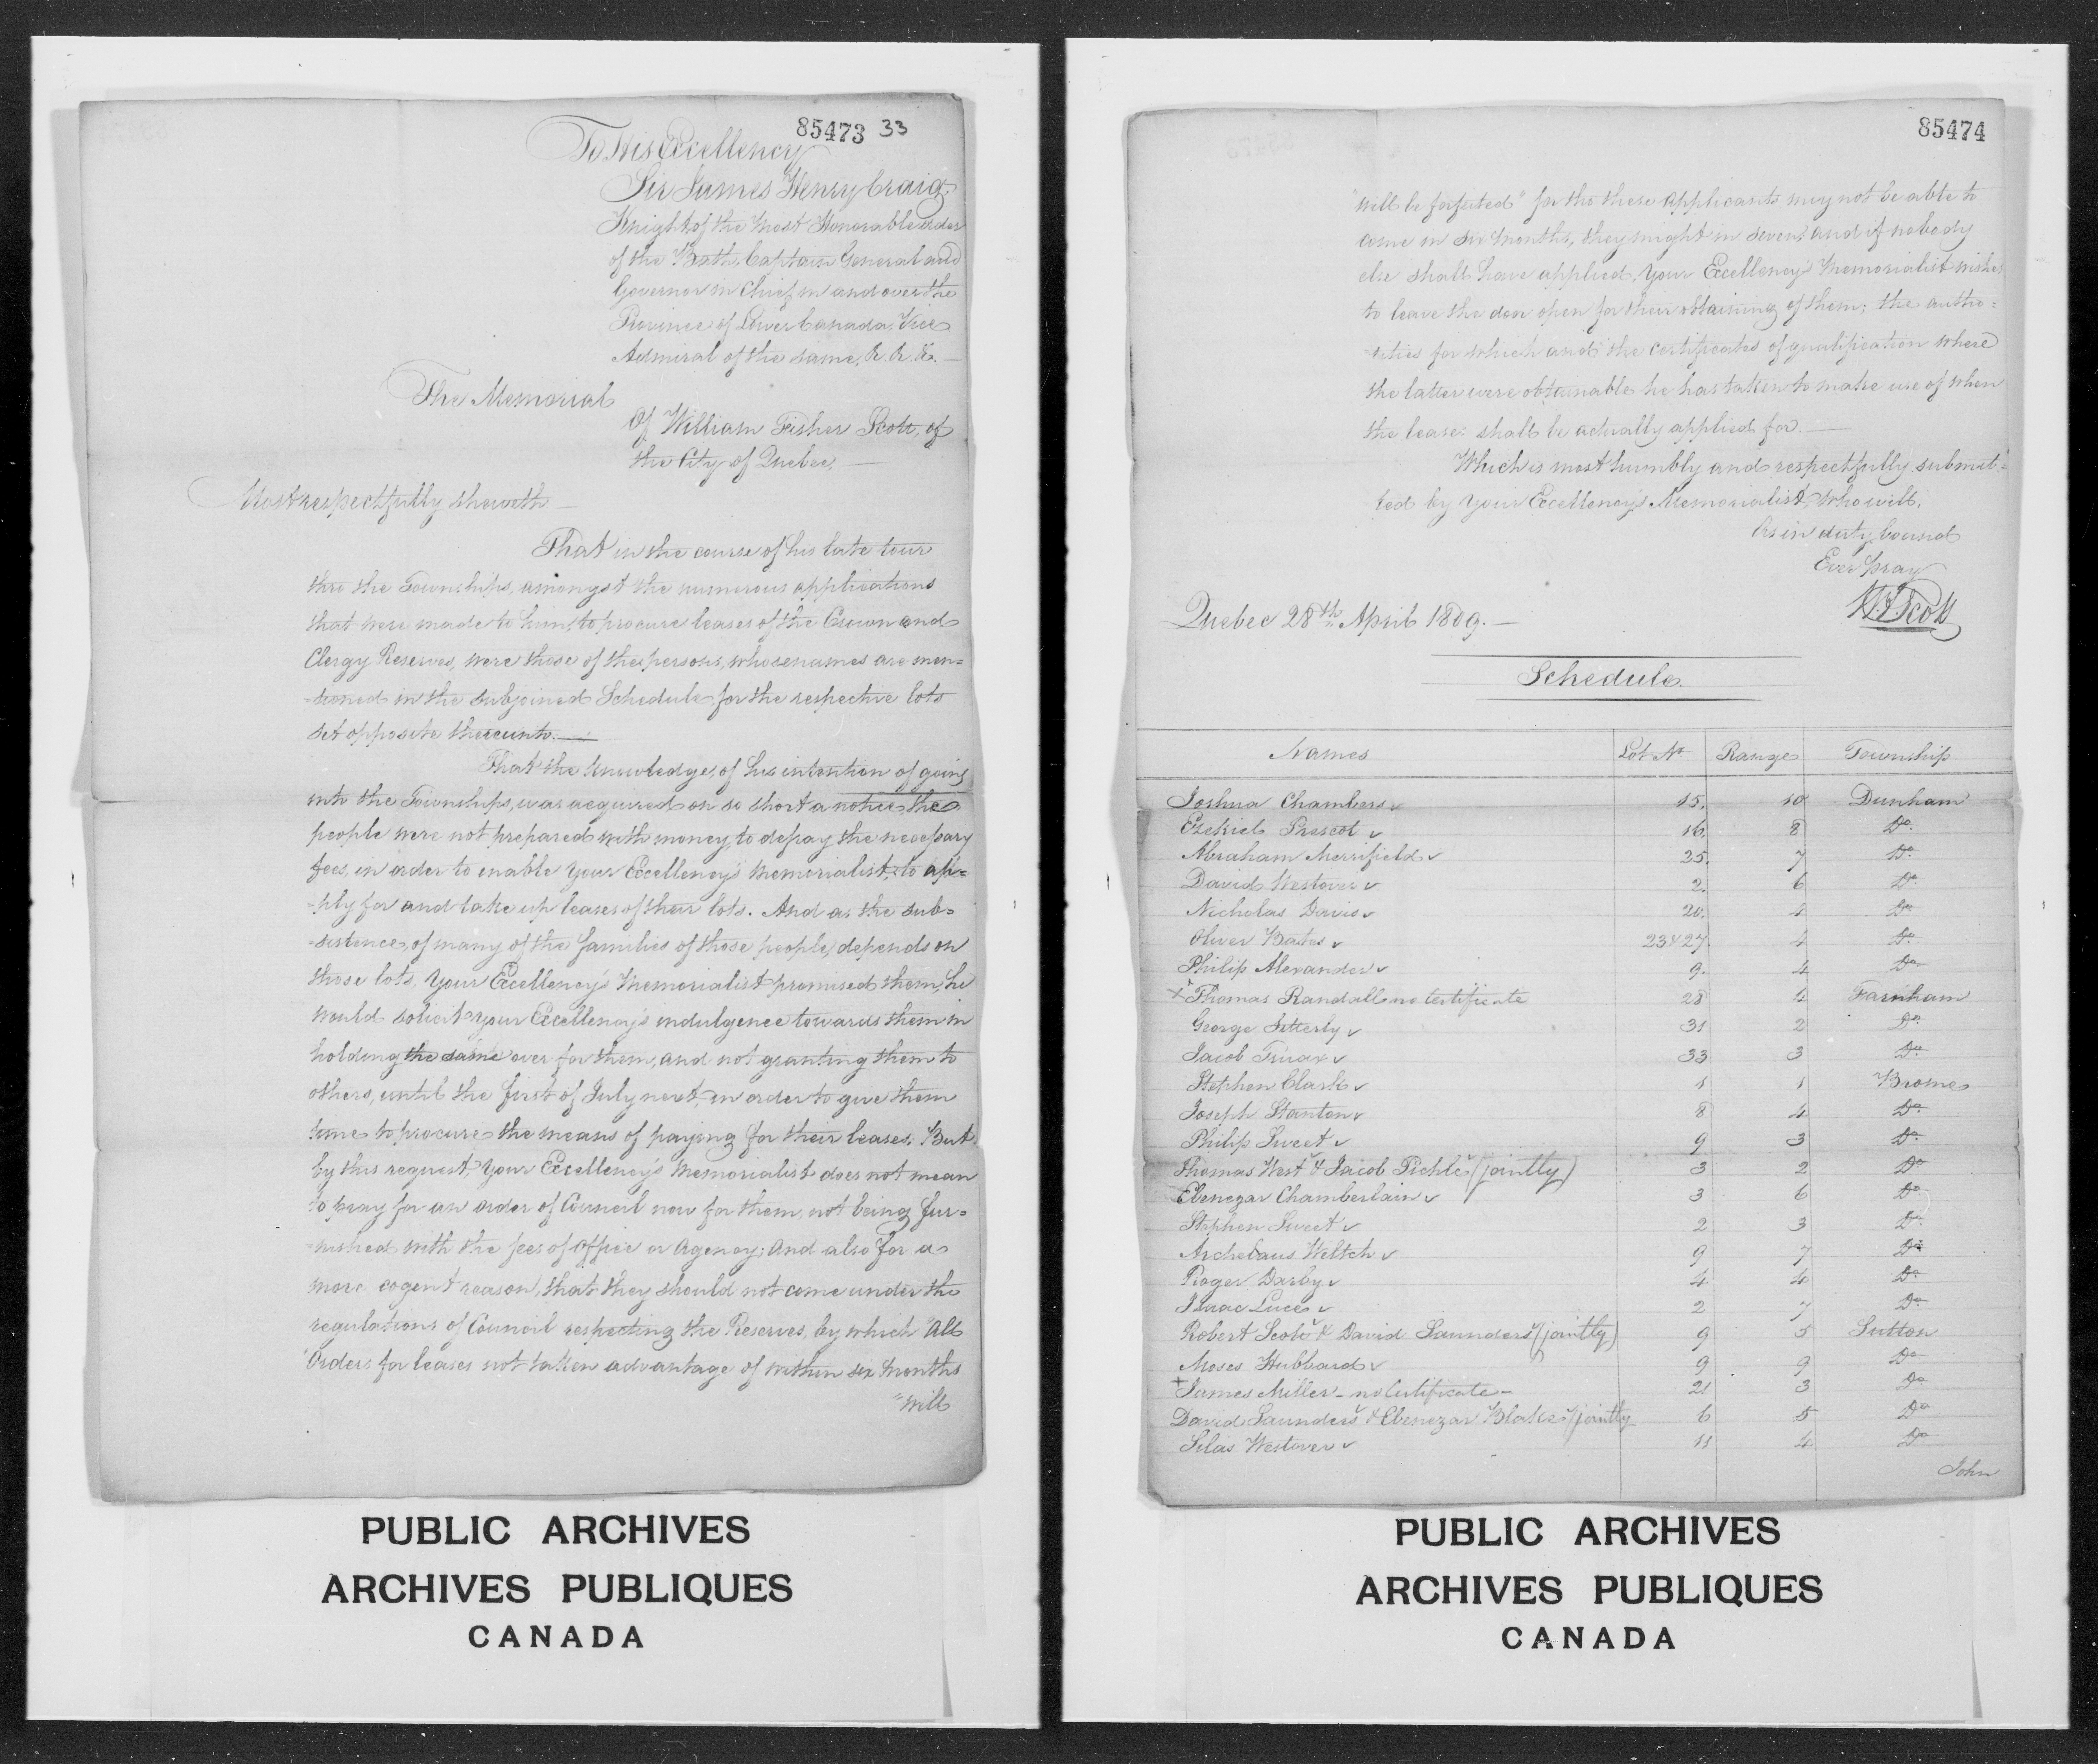 85473 33
To His Excellency
Sir James Henry Craig,
Knight of the Most Honorable order
of the Bath, Captain General and
Governor in Chief in and over the
Province of Lower Canada, Vice
Admiral of the same, &. &. &. —
The Memorial
Of William Fisher Scott, of
the City of Quebec, —
Most respectfully sheweth —
That in the course of his late tour
thro the Townships, amongst the numerous applications
that were made to him, to procure leases of the Crown and
Clergy Reserves, were those of the persons, whose names are men=
=tioned in the subjoined Schedule for the respective lots
set opposite thereunto. —
That the knowledge, of his intention of going
into the Townships, was acquired on so short a notice, the
people were not prepared with money, to defray the necessary
fees, in order to enable Your Excellency's Memorialist, to ap=
=ply for and take up leases of their lots. And as the sub=
=sistence, of many of the families of those people, depends on
those lots, Your Excellency's Memorialist promised them, he
would solicit Your Excellency's indulgence towards them in
holding the same over for them, and not granting them to
others, until the first of July next, in order to give them
time to procure the means of paying for their leases. But
by this request, Your Excellency's Memorialist does not mean
to pray for an order of Council now for them, not being fur=
=nished with the fees of office or Agency; and also for a
more cogent reason, that they should not come under the
regulations of Council respecting the Reserves, by which "All
"Orders for leases not taken advantage of within six months
"will
PUBLIC ARCHIVES
ARCHIVES PUBLIQUES
CANADA
85474
"will be forfeited" for tho these applicants may not be able to
come in six months, they might in seven, and if nobody
else shall have applied, Your Excellency's Memorialist wishes
to leave the door open for their obtaining of them; the autho=
=rities for which and the certificates of qualification where
the latter were obtainable he has taken to make use of when
the leases shall be actually applied for. —
Which is most humbly and respectfully submit=
ted by Your Excellency's Memorialist, who will,
As in duty bound
Ever pray
W. F. Scott
Quebec 28th April 1809. —
Schedule.
Names Lot No Range Township
Joshua Chambers ✓ 15. 10 Dunham
Ezekiel Prescot ✓ 16. 8 Do.
Abraham Merrifield ✓ 25. 7 Do.
David Westover ✓ 2. 6 Do.
Nicholas Davis ✓ 20. 4 Do.
Oliver Bates ✓ 23 & 27. 4 Do.
Philip Alexander ✓ 9. 4 Do.
x Thomas Randall no Certificate 28 4 Farnham
George Sitterly ✓ 31 2 Do.
Jacob Truax ✓ 33 3 Do.
Stephen Clark ✓ 1 1 Brome
Joseph Stanton ✓ 8 4 Do.
Philip Sweet ✓ 9 3 Do.
Thomas West ✓ & Jacob Pickle ✓ (jointly) 3 2 Do
Ebenezar Chamberlain ✓ 3 6 Do
Stephen Sweet ✓ 2 3 Do.
Archelaus Weltch ✓ 9 7 Do.
Roger Darby ✓ 4 4 Do.
Isaac Luce ✓ 2 7 Do.
Robert Scote ✓ & David Saunders ✓ (jointly) 9 5 Sutton
Moses Hubbard ✓ 9 9 Do.
+ James Miller - no Certificate - 21 3 Do.
David Saunders ✓ & Ebenezar Blake ✓ (jointly 6 5 Do
Silas Westover ✓ 11 4 Do
John
PUBLIC ARCHIVES
ARCHIVES PUBLIQUES
CANADA